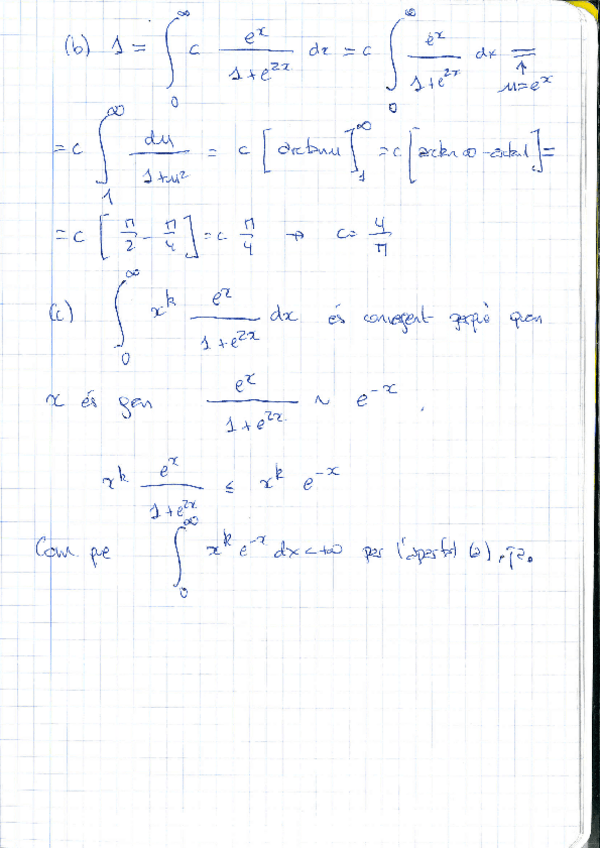 (b) 1 = ∫₀^∞ c e^x / (1+e^{2x}) dx = c ∫₀^∞ e^x / (1+e^{2x}) dx = ↑ u=e^x
= c ∫₁^∞ du / (1+u²) = c [arctan u]₁^∞ = c [arctan ∞ - arctan 1] =
= c [π/2 - π/4] = c π/4 → c = 4/π
(c) ∫₀^∞ x^k e^x / (1+e^{2x}) dx és convergent perquè quan
x és gran e^x / (1+e^{2x}) ~ e^{-x}.
x^k e^x / (1+e^{2x}) ≤ x^k e^{-x}
Com que ∫₀^∞ x^k e^{-x} dx < +∞ per l'apartat (a), ja.